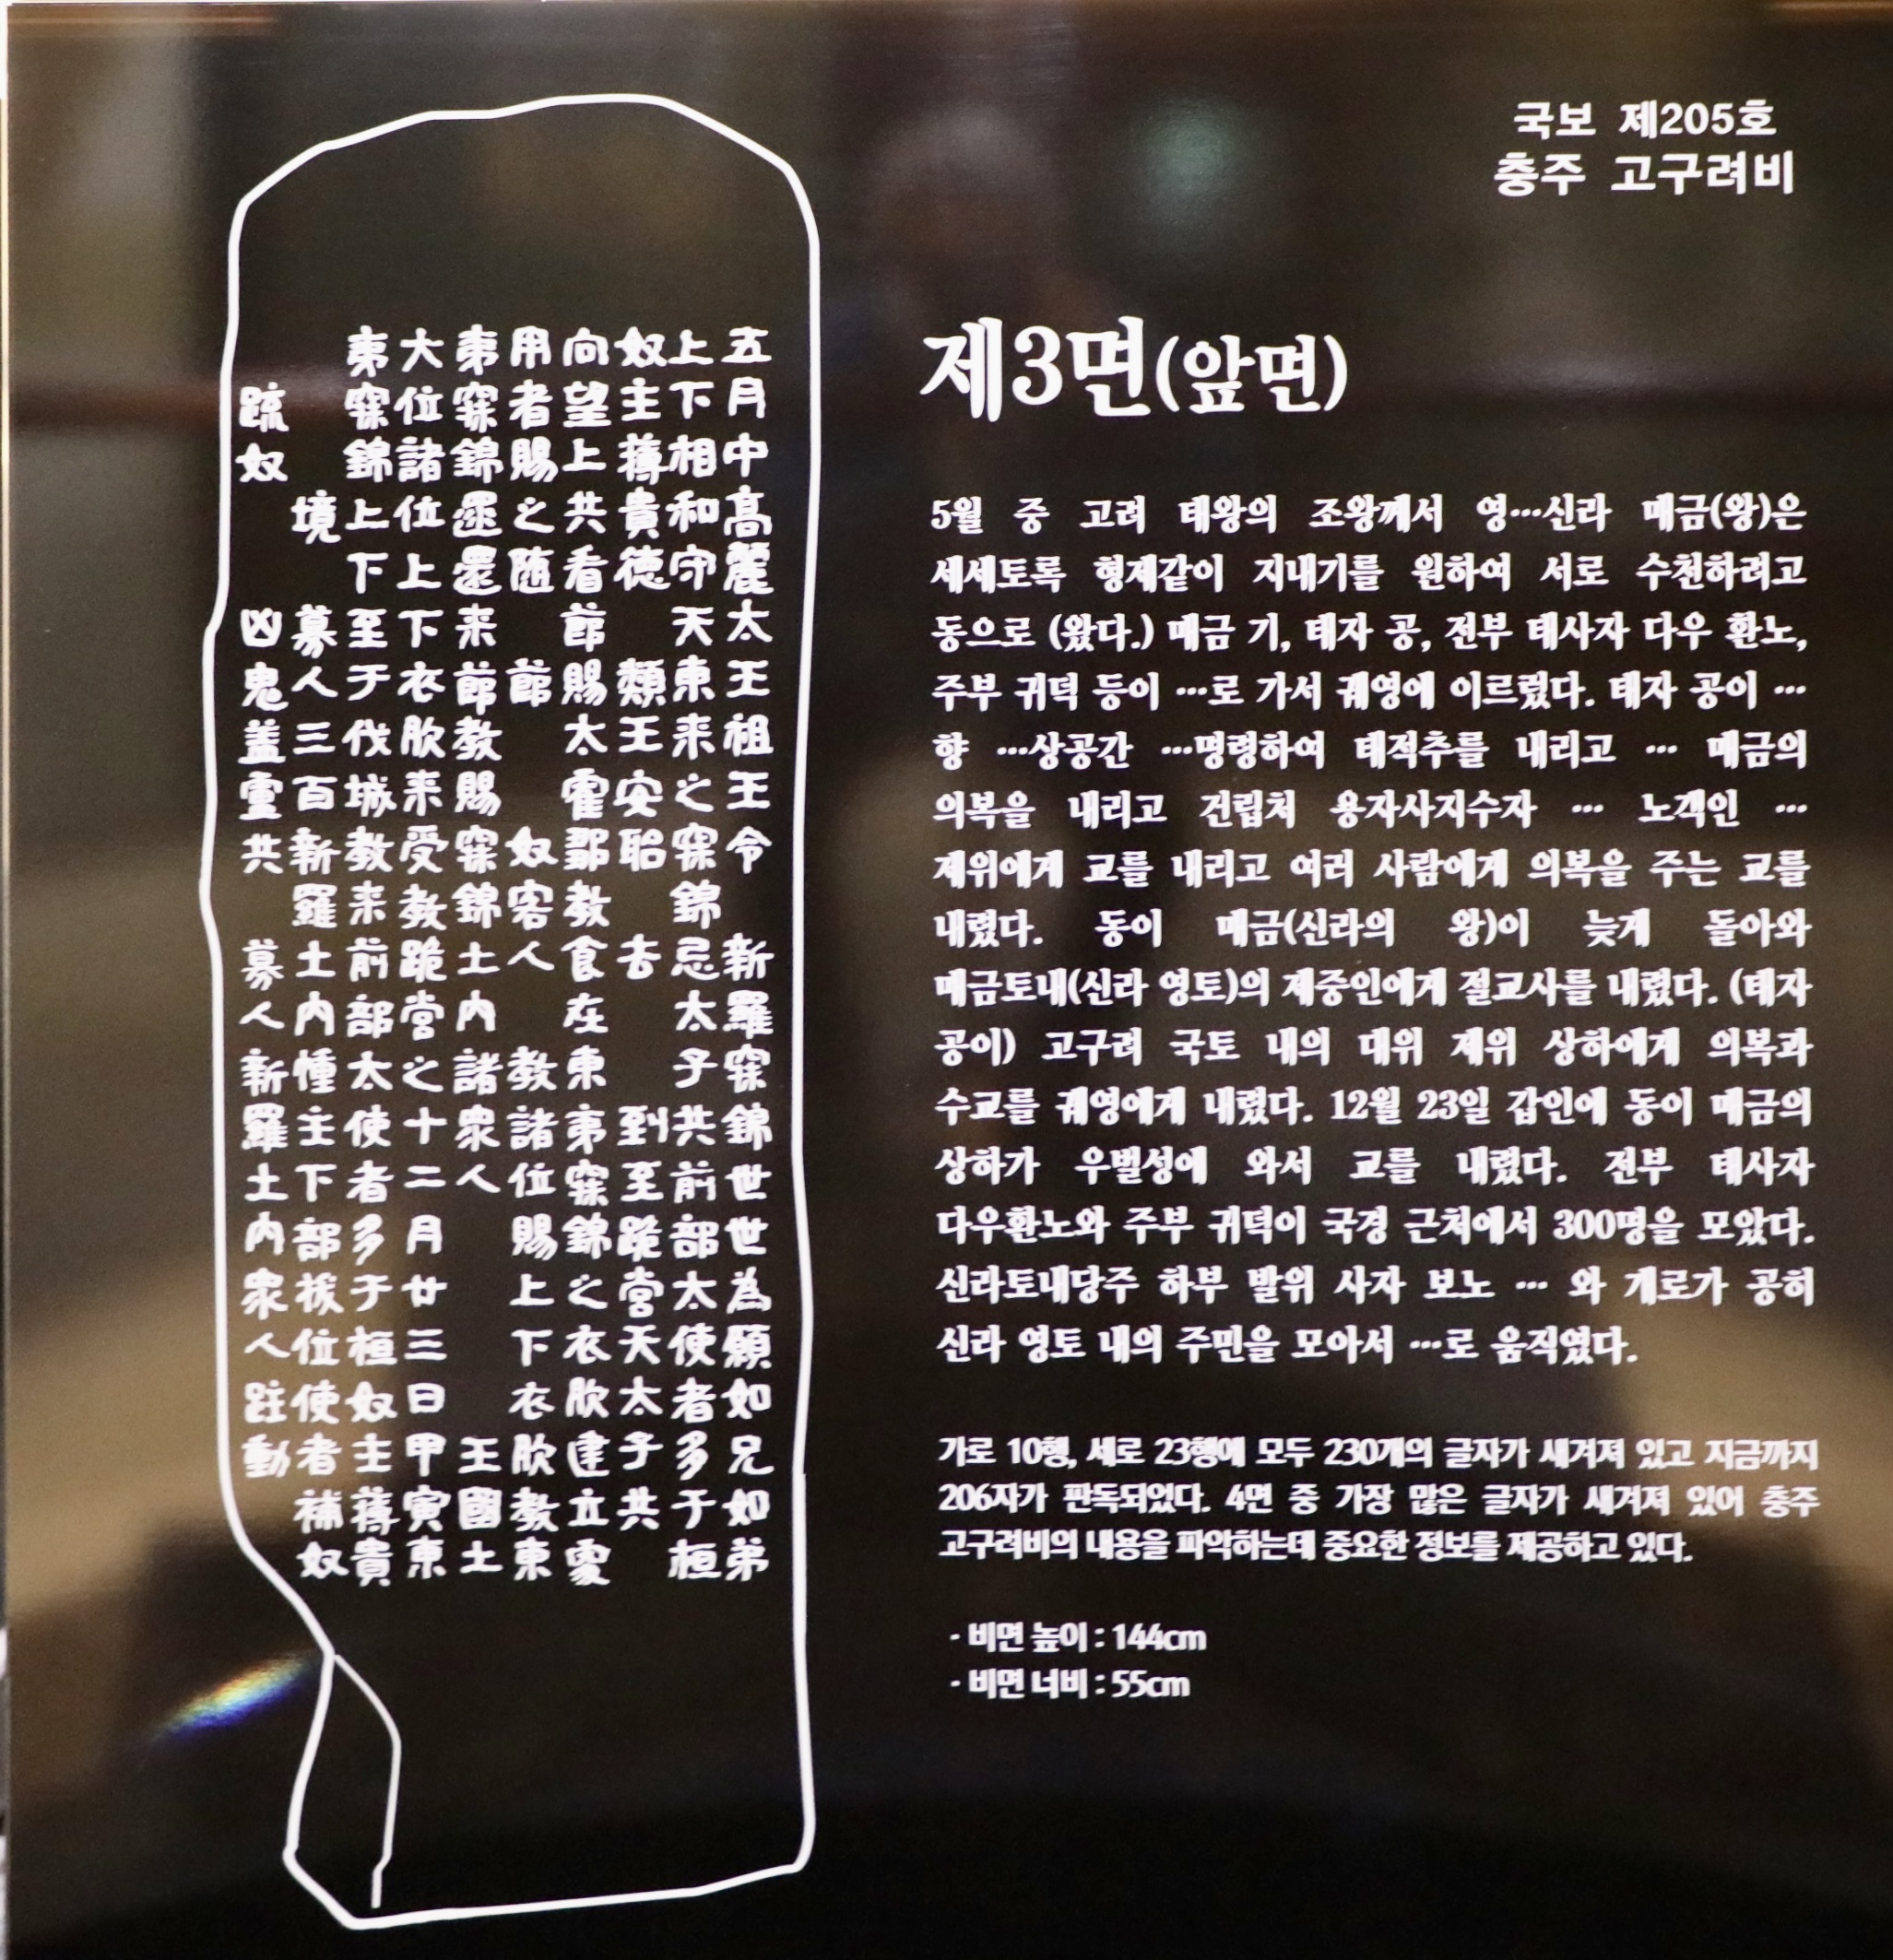 국보 제205호
충주 고구려비
五月中高麗太王祖王令 新羅寐錦世世為願如兄如弟
上下相和守天東来之寐錦忌太子共前部太使者多于桓
奴主簿貴德 類王安聆 去 到至跪營天太子共
向望上共看節賜太霍鄒教食在東夷寐錦之衣服建立處
用者賜之随 節 奴客人 教諸位賜上下衣服教東
夷寐錦遝還来節教賜寐錦土内諸衆人 王國土
大位諸位上下衣服来受教跪營之十二月廿三日甲寅東
夷寐錦上下至于伐城教来前部太使者多于桓奴主簿貴
境 募人三百新羅土内幢主下部拔位使者補奴
䟽奴 凶鬼盖盧共 募人新羅土内衆人跓動
제3면(앞면)
5월 중 고려 태왕의 조왕께서 영…신라 매금(왕)은
세세토록 형제같이 지내기를 원하여 서로 수천하려고
동으로 (왔다.) 매금 기, 태자 공, 전부 태사자 다우 환노,
주부 귀덕 등이 …로 가서 궤영에 이르렀다. 태자 공이 …
향 …상공간 …명령하여 태적추를 내리고 … 매금의
의복을 내리고 건립처 용자사지수자 … 노객인 …
제위에게 교를 내리고 여러 사람에게 의복을 주는 교를
내렸다. 동이 매금(신라의 왕)이 늦게 돌아와
매금토내(신라 영토)의 제중인에게 절교사를 내렸다. (태자
공이) 고구려 국토 내의 대위 제위 상하에게 의복과
수교를 궤영에게 내렸다. 12월 23일 갑인에 동이 매금의
상하가 우벌성에 와서 교를 내렸다. 전부 태사자
다우환노와 주부 귀덕이 국경 근처에서 300명을 모았다.
신라토내당주 하부 발위 사자 보노 … 와 개로가 공히
신라 영토 내의 주민을 모아서 …로 움직였다.
가로 10행, 세로 23행에 모두 230개의 글자가 새겨져 있고 지금까지
206자가 판독되었다. 4면 중 가장 많은 글자가 새겨져 있어 충주
고구려비의 내용을 파악하는데 중요한 정보를 제공하고 있다.
- 비면 높이 : 144cm
- 비면 너비 : 55cm